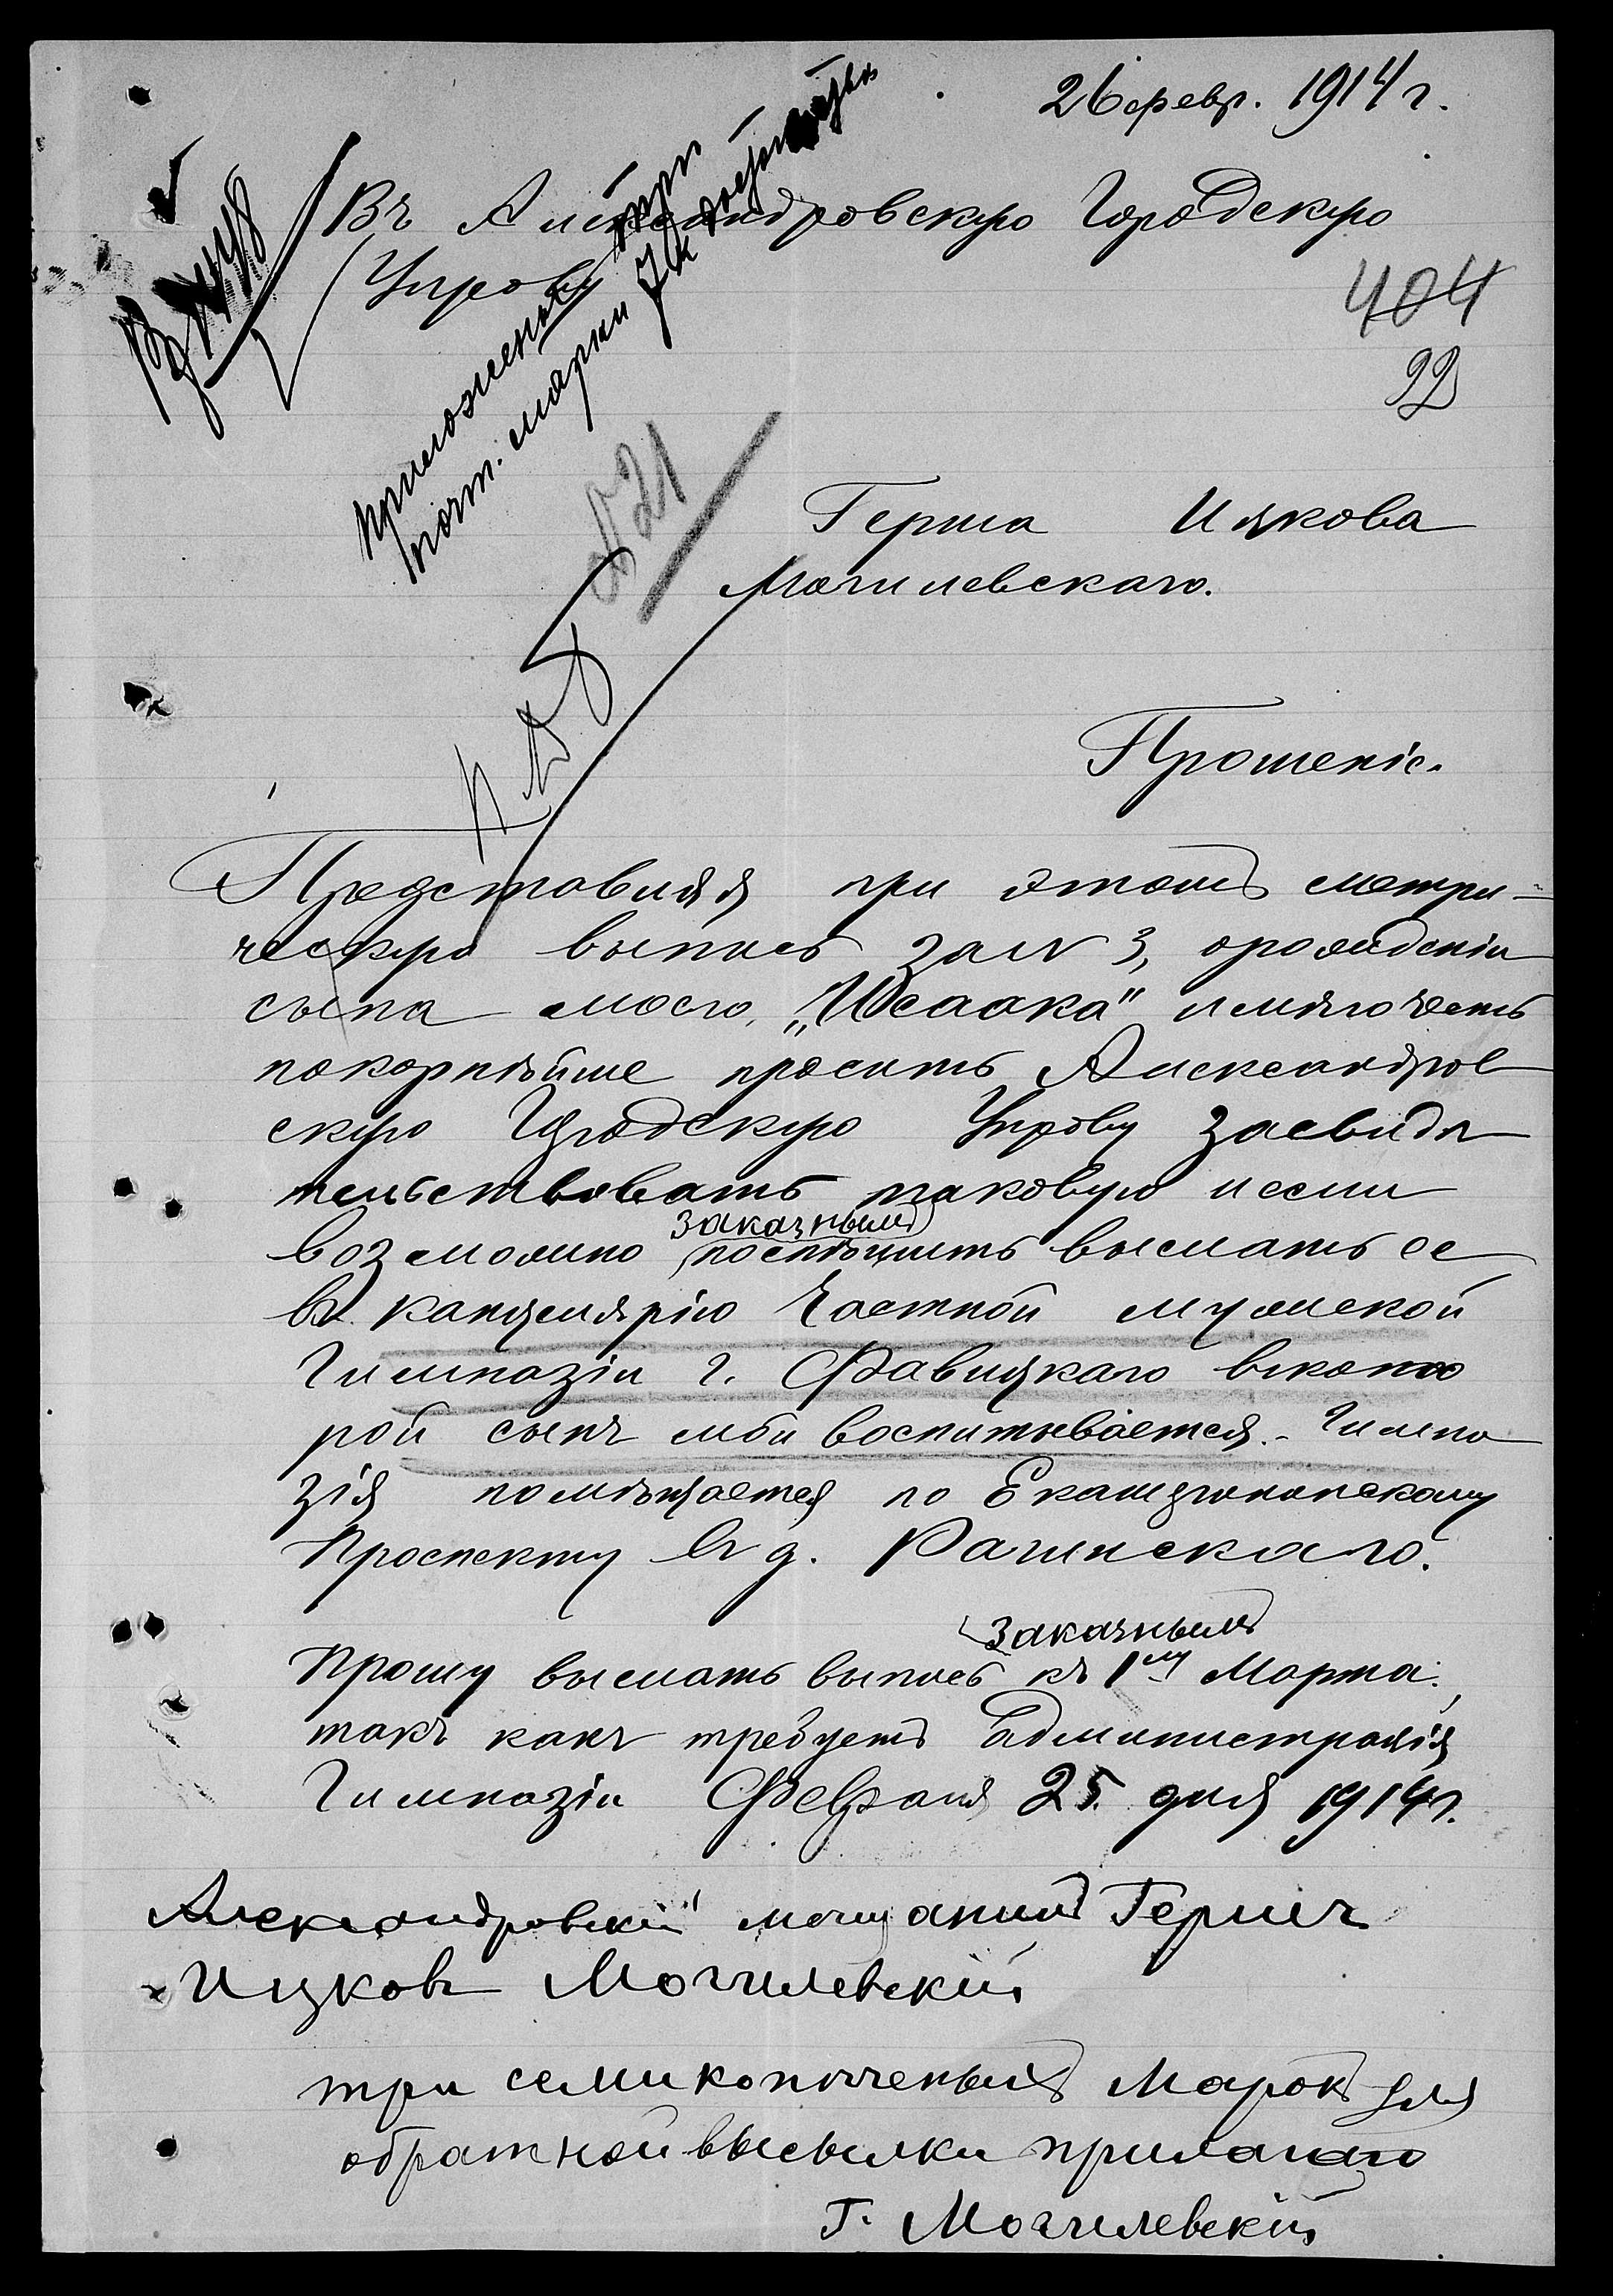 26 февр. 1914 г.
Въ Александровскую Городскую
Управу
приложены три
почт. марки 7 к. достоинства
404
92
№ 21
Герша Ицкова
Могилевскаго.
Прошеніе.
Представляя при этомъ метри-
ческую выпись за № 3, о рожденіи
сына моего, „Исаака" имѣю честь
покорнѣйше просить Александров
скую Городскую Управу засвидѣ
тельствовать таковую и если
заказнымъ
возможно поспѣшить выслать ее
въ канцелярію Частной мужской
Гимназіи г. Фовицкаго въ кото
рой сынъ мой воспитывается. - Гимна
зія помѣщается по Екатерининскому
Проспекту въ д. Рагинскаго.
заказнымъ
Прошу выслать выпись къ 1му Марта.,
такъ какъ требуетъ администрація
Гимназіи Февраля 25. дня 1914 г.
Александровскій мѣщанинъ Гершъ
Ицковъ Могилевскій
три семикопѣечныхъ марокъ для
обратной высылки прилагаю
Г. Могилевскій